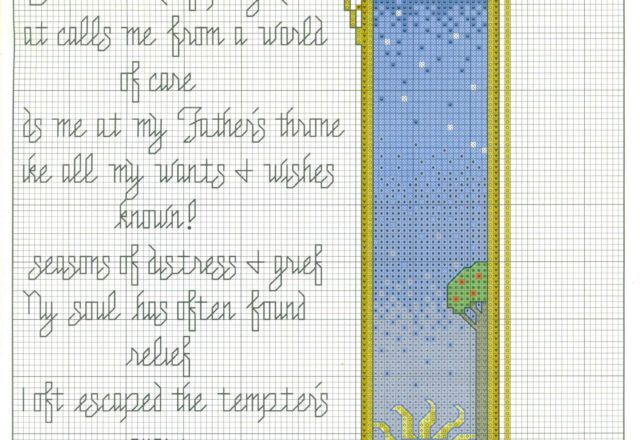 at calls me from a world
of care
ds me at my Father's throne
ke all my wants & wishes
known!
seasons of distress & grief
My soul has often found
relief
oft escaped the tempter's